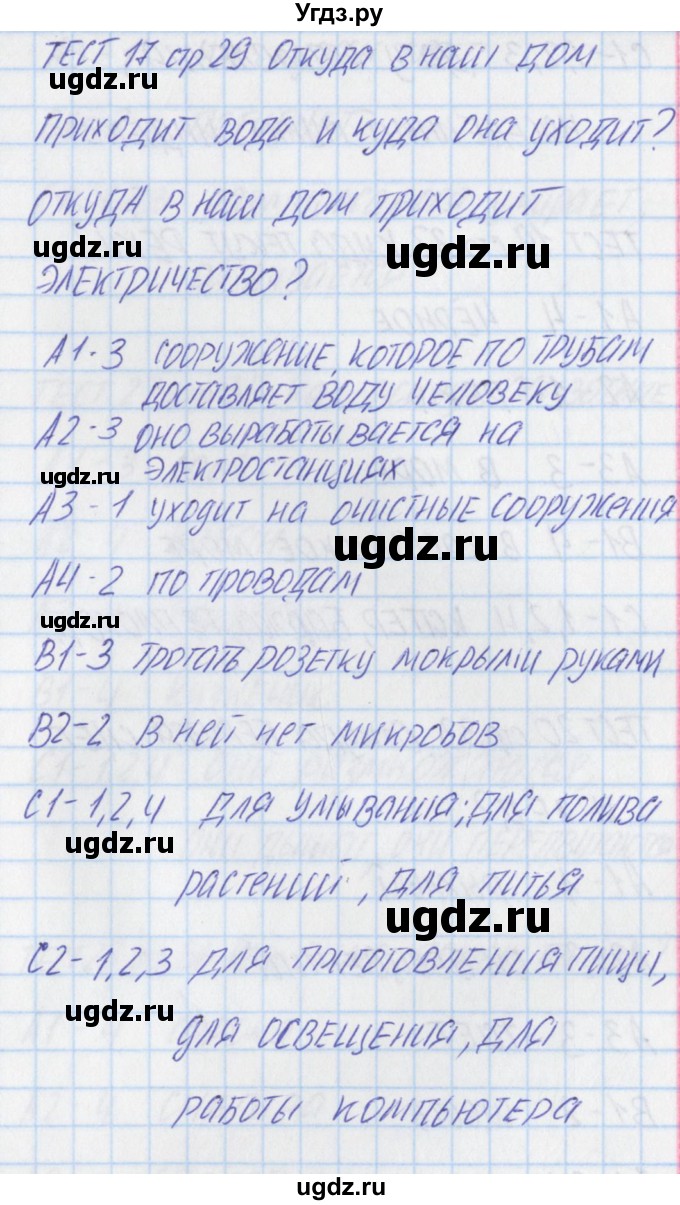 Угдз.ру
ТЕСТ 17 стр 29 Откуда в наш дом
приходит вода и куда она уходит?
Откуда в наш дом приходит
электричество?
А1-3 сооружение, которое по трубам
доставляет воду человеку
А2-3 оно вырабатывается на
электростанциях
А3-1 уходит на очистные сооружения
А4-2 по проводам
В1-3 трогать розетку мокрыми руками
В2-2 в ней нет микробов
С1-1,2,4 для умывания; для полива
растений, для питья
С2-1,2,3 для приготовления пищи,
для освещения, для
работы компьютера
ugdz.ru
ugdz.ru
ugdz.ru
ugdz.ru
ugdz.ru
ugdz.ru
ugdz.ru
ugdz.ru
ugdz.ru
ugdz.ru
ugdz.ru